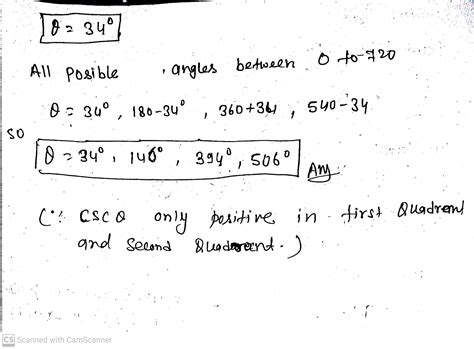 θ = 34°
All Posible , angles between 0 to 720
θ = 34° , 180-34° , 360+34 , 540-34
so
θ = 34° , 146° , 394° , 506° Ans
(∵ CSC θ only positive in first Quadrent
and Second Quadrant.)
CS Scanned with CamScanner